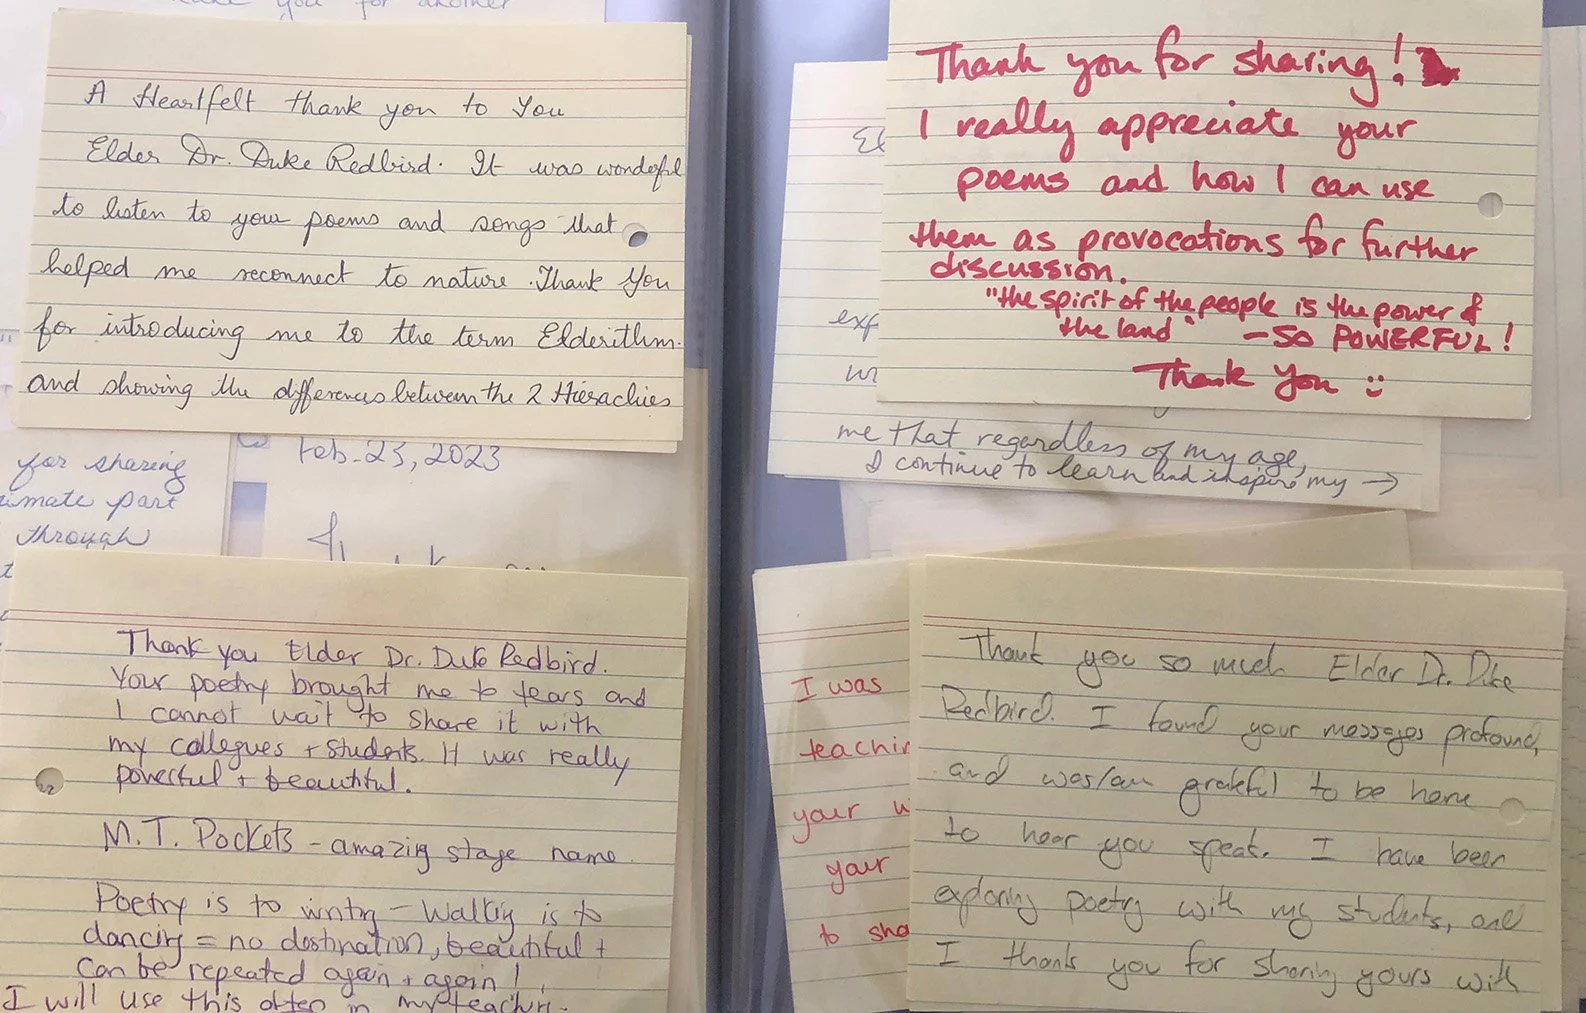 you for another
A Heartfelt thank you to You
Elder Dr. Duke Redbird. It was wondeful
to listen to your poems and songs that
helped me reconnect to nature. Thank You
for introducing me to the term Elderithm.
and showing the differences between the 2 Hierachies
for sharing
imate part
through
Feb. 23, 2023
Thank you Elder Dr. Duke Redbird.
Your poetry brought me to tears and
I cannot wait to share it with
my collegues + students. It was really
powerful + beautiful.
M.T. Pockets - amazing stage name.
Poetry is to writing - Walking is to
dancing = no destination, beautiful +
can be repeated again + again!
I will use this often in my teaching.
Thank you for sharing!
I really appreciate your
poems and how I can use
them as provocations for further
discussion.
"the spirit of the people is the power of
the land" - SO POWERFUL!
Thank You :)
El
exp
me that regardless of my age,
I continue to learn and inspire my →
I was
teachin
your w
your
to sha
Thank you so much Elder Dr. Duke
Redbird. I found your messages profound,
and was/am grateful to be here
to hear you speak. I have been
exploring poetry with my students, and
I thank you for sharing yours with